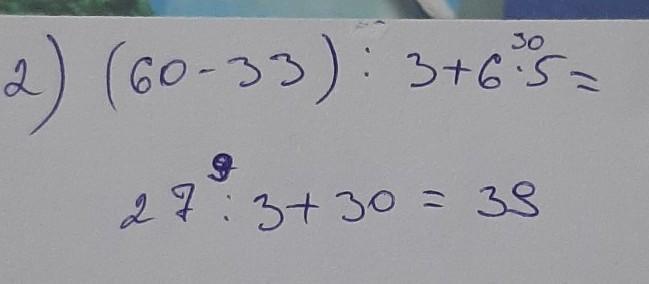 2) (60-33) : 3+6·5=
30
9
27 : 3+30 = 39